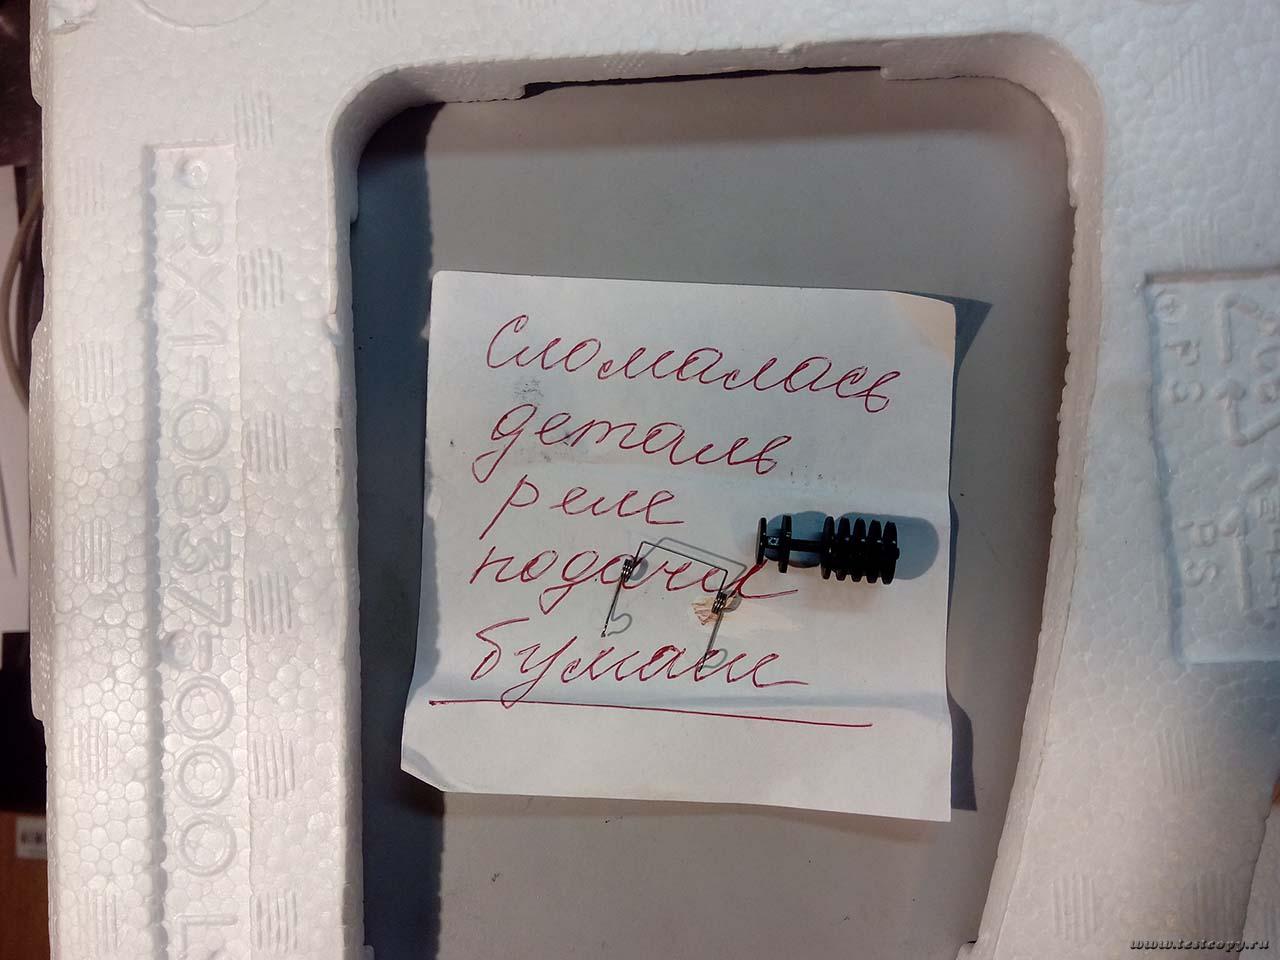 Сломалась
деталь
реле
подачи
бумаги
RX1-0837-000 L
PS
PS
www.testcopy.ru